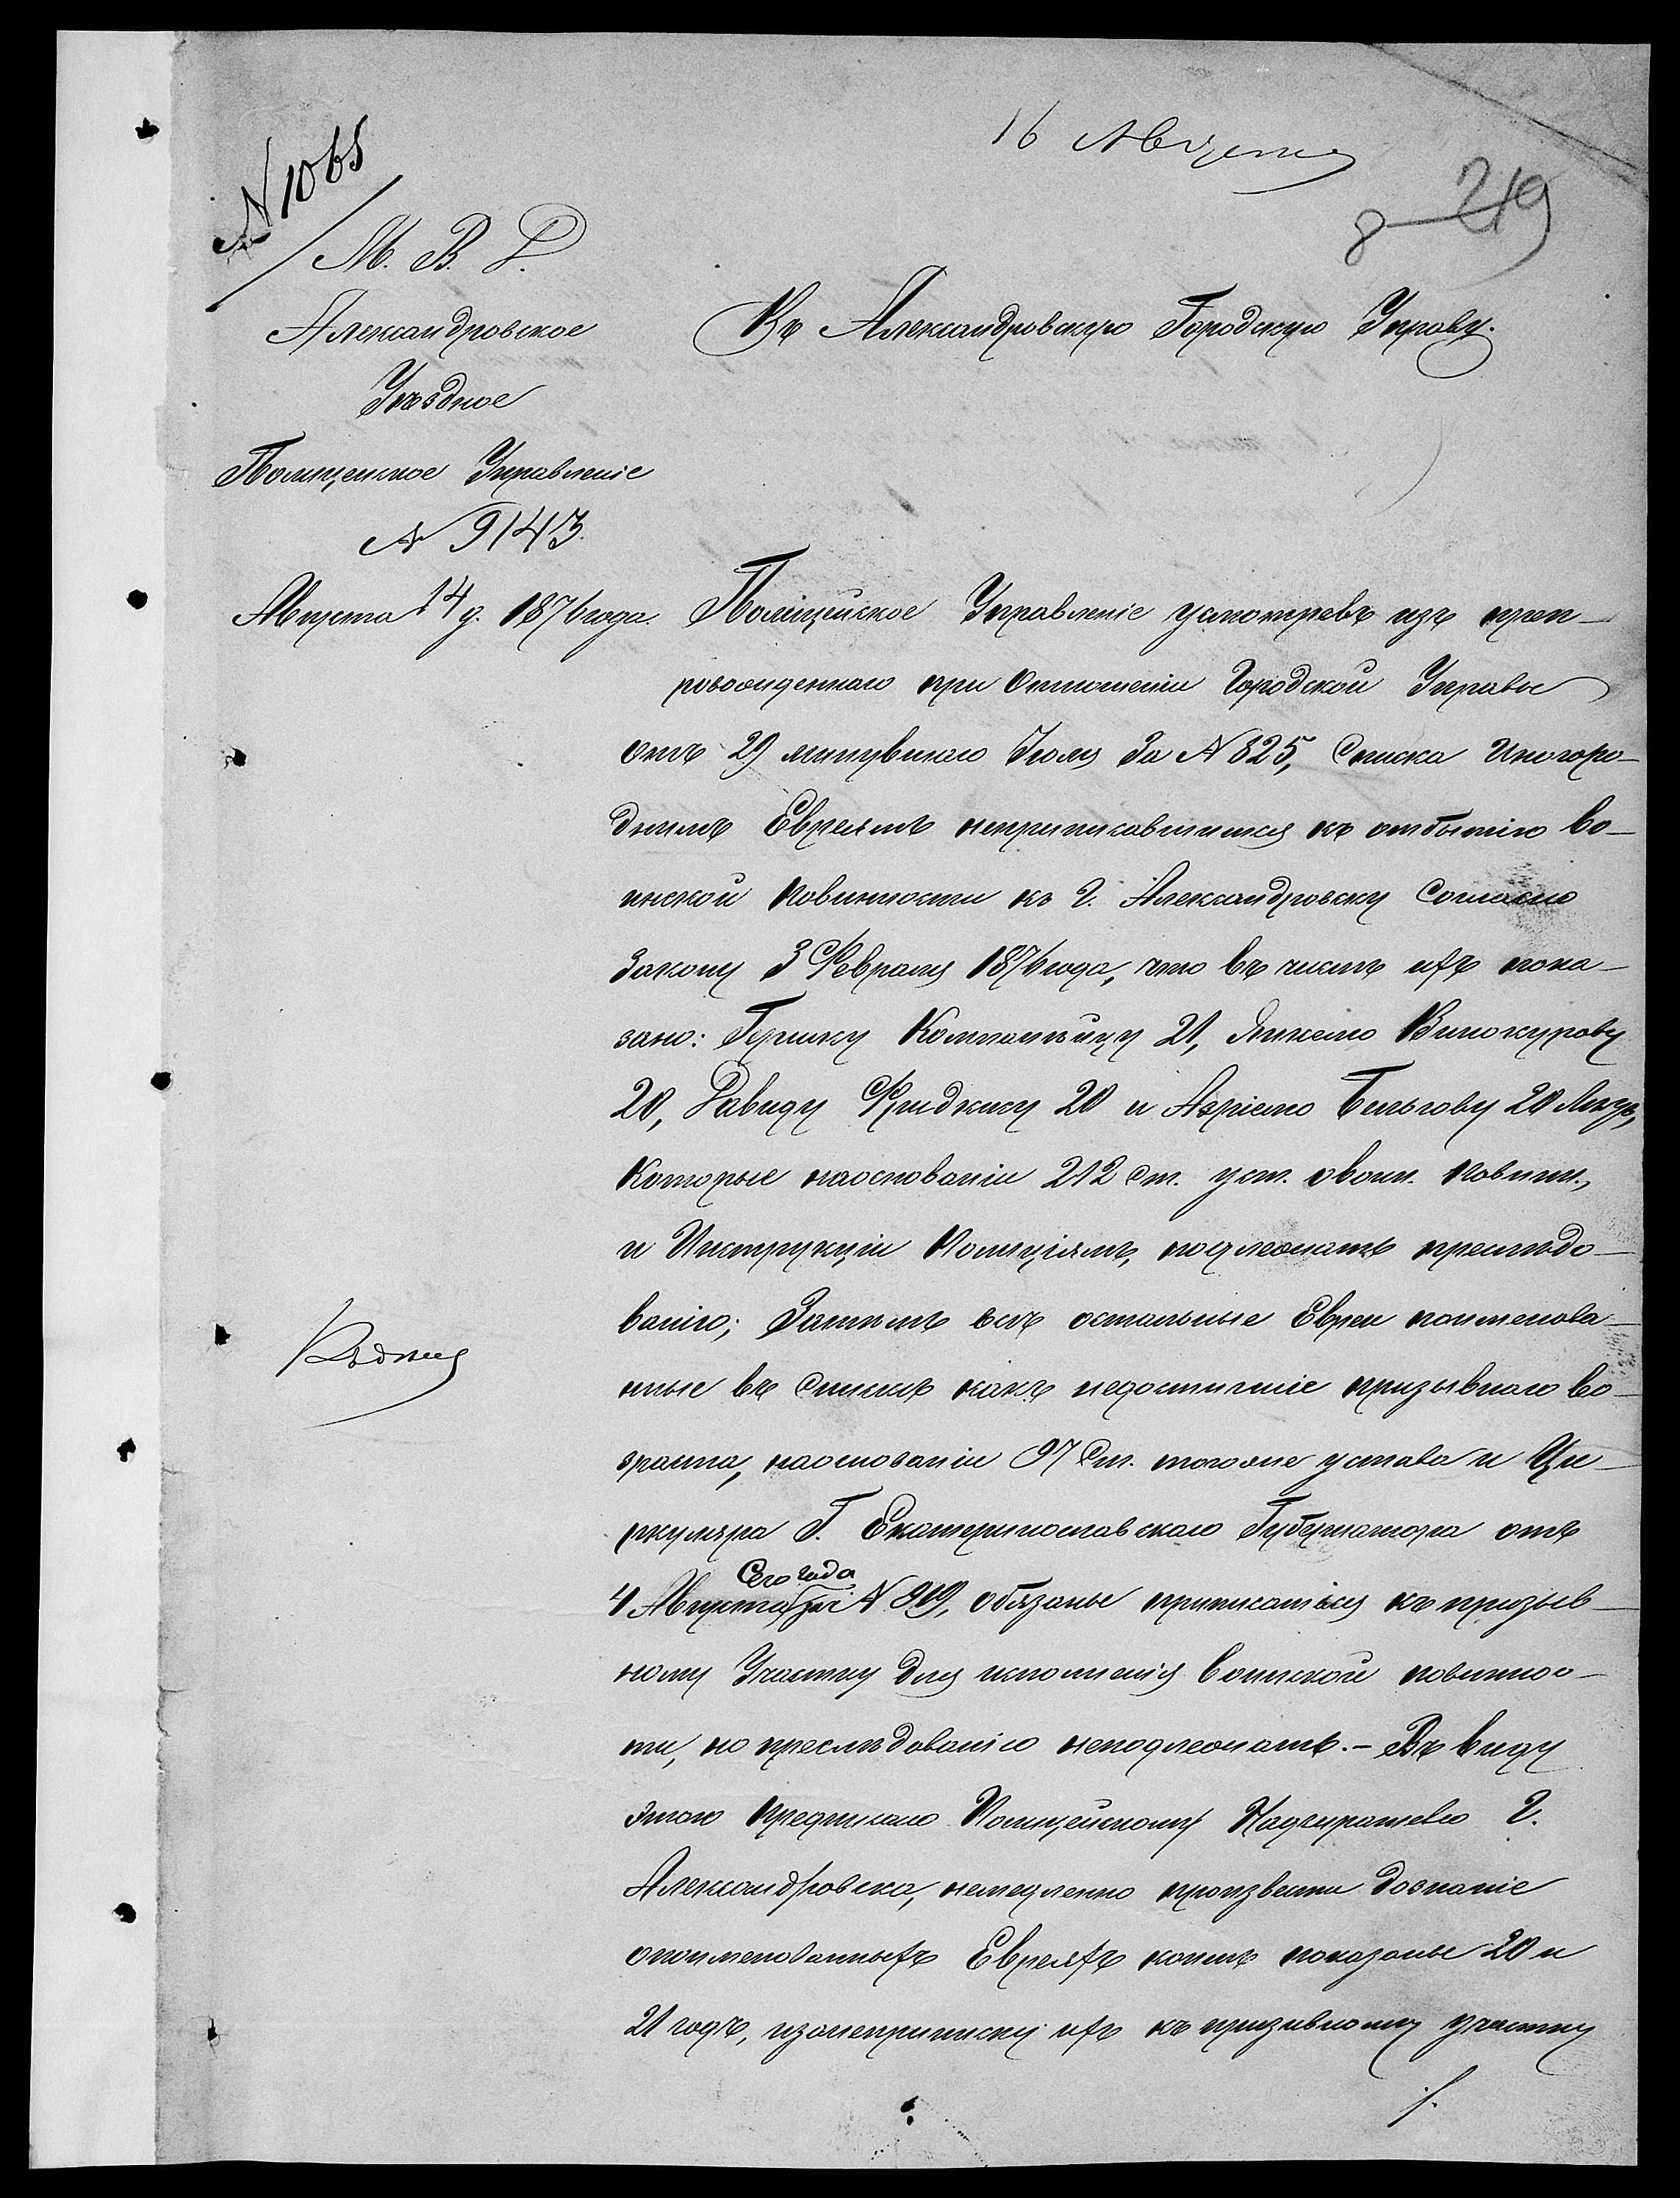 16 Августа
8 219
N 1065
М. В. Д.
Александровское
Уѣздное
Полицейское Управленіе
N 9143.
Августа 14 д. 1876 года.
Въ Александровскую Городскую Управу.
Полицейское Управленіе усмотревъ изъ преп-
ровожденнаго при Отношеніи Городской Управы
отъ 29 минувшаго Іюля За N 825, Списка Иногоро-
днимъ Евреямъ неприписавшимся къ отбытію во-
инской Повинности къ Г. Александровску Согласно
Закону 3 Февраля 1876 года, что въ числѣ ихъ пока-
зано: Гершку 21, Янкелю Винокурову
20, Давиду Фридкину 20 и Азріелю 20 Летъ,
Которые наоснованіи 212 Ст. уст. овоин. Повинн.,
и Инструкціи Полиціямъ, подлежатъ преслѣдо-
ванію; Затѣмъ всѣ остальные Евреи поименова-
нные въ Спискѣ какъ недостигшіе призывнаго во-
зраста, наоснованіи 97 Ст. тогоже устава и Ци-
ркуляра Г. Екатеринославскаго Губернатора отъ
Сего года
4 Августа за N 819, обязаны приписаться къ призыв-
ному Участку для исполненія воинской повиннос-
ти, но преслѣдованію неподлежатъ. - Въ виду
этого Предписано Полицейскому Надзирателю Г.
Александровска, немедленно произвести дознаніе
опоименованныхъ Евреяхъ коимъ показаны 20 и
21 годъ, изанеприписку ихъ къ призывному участку